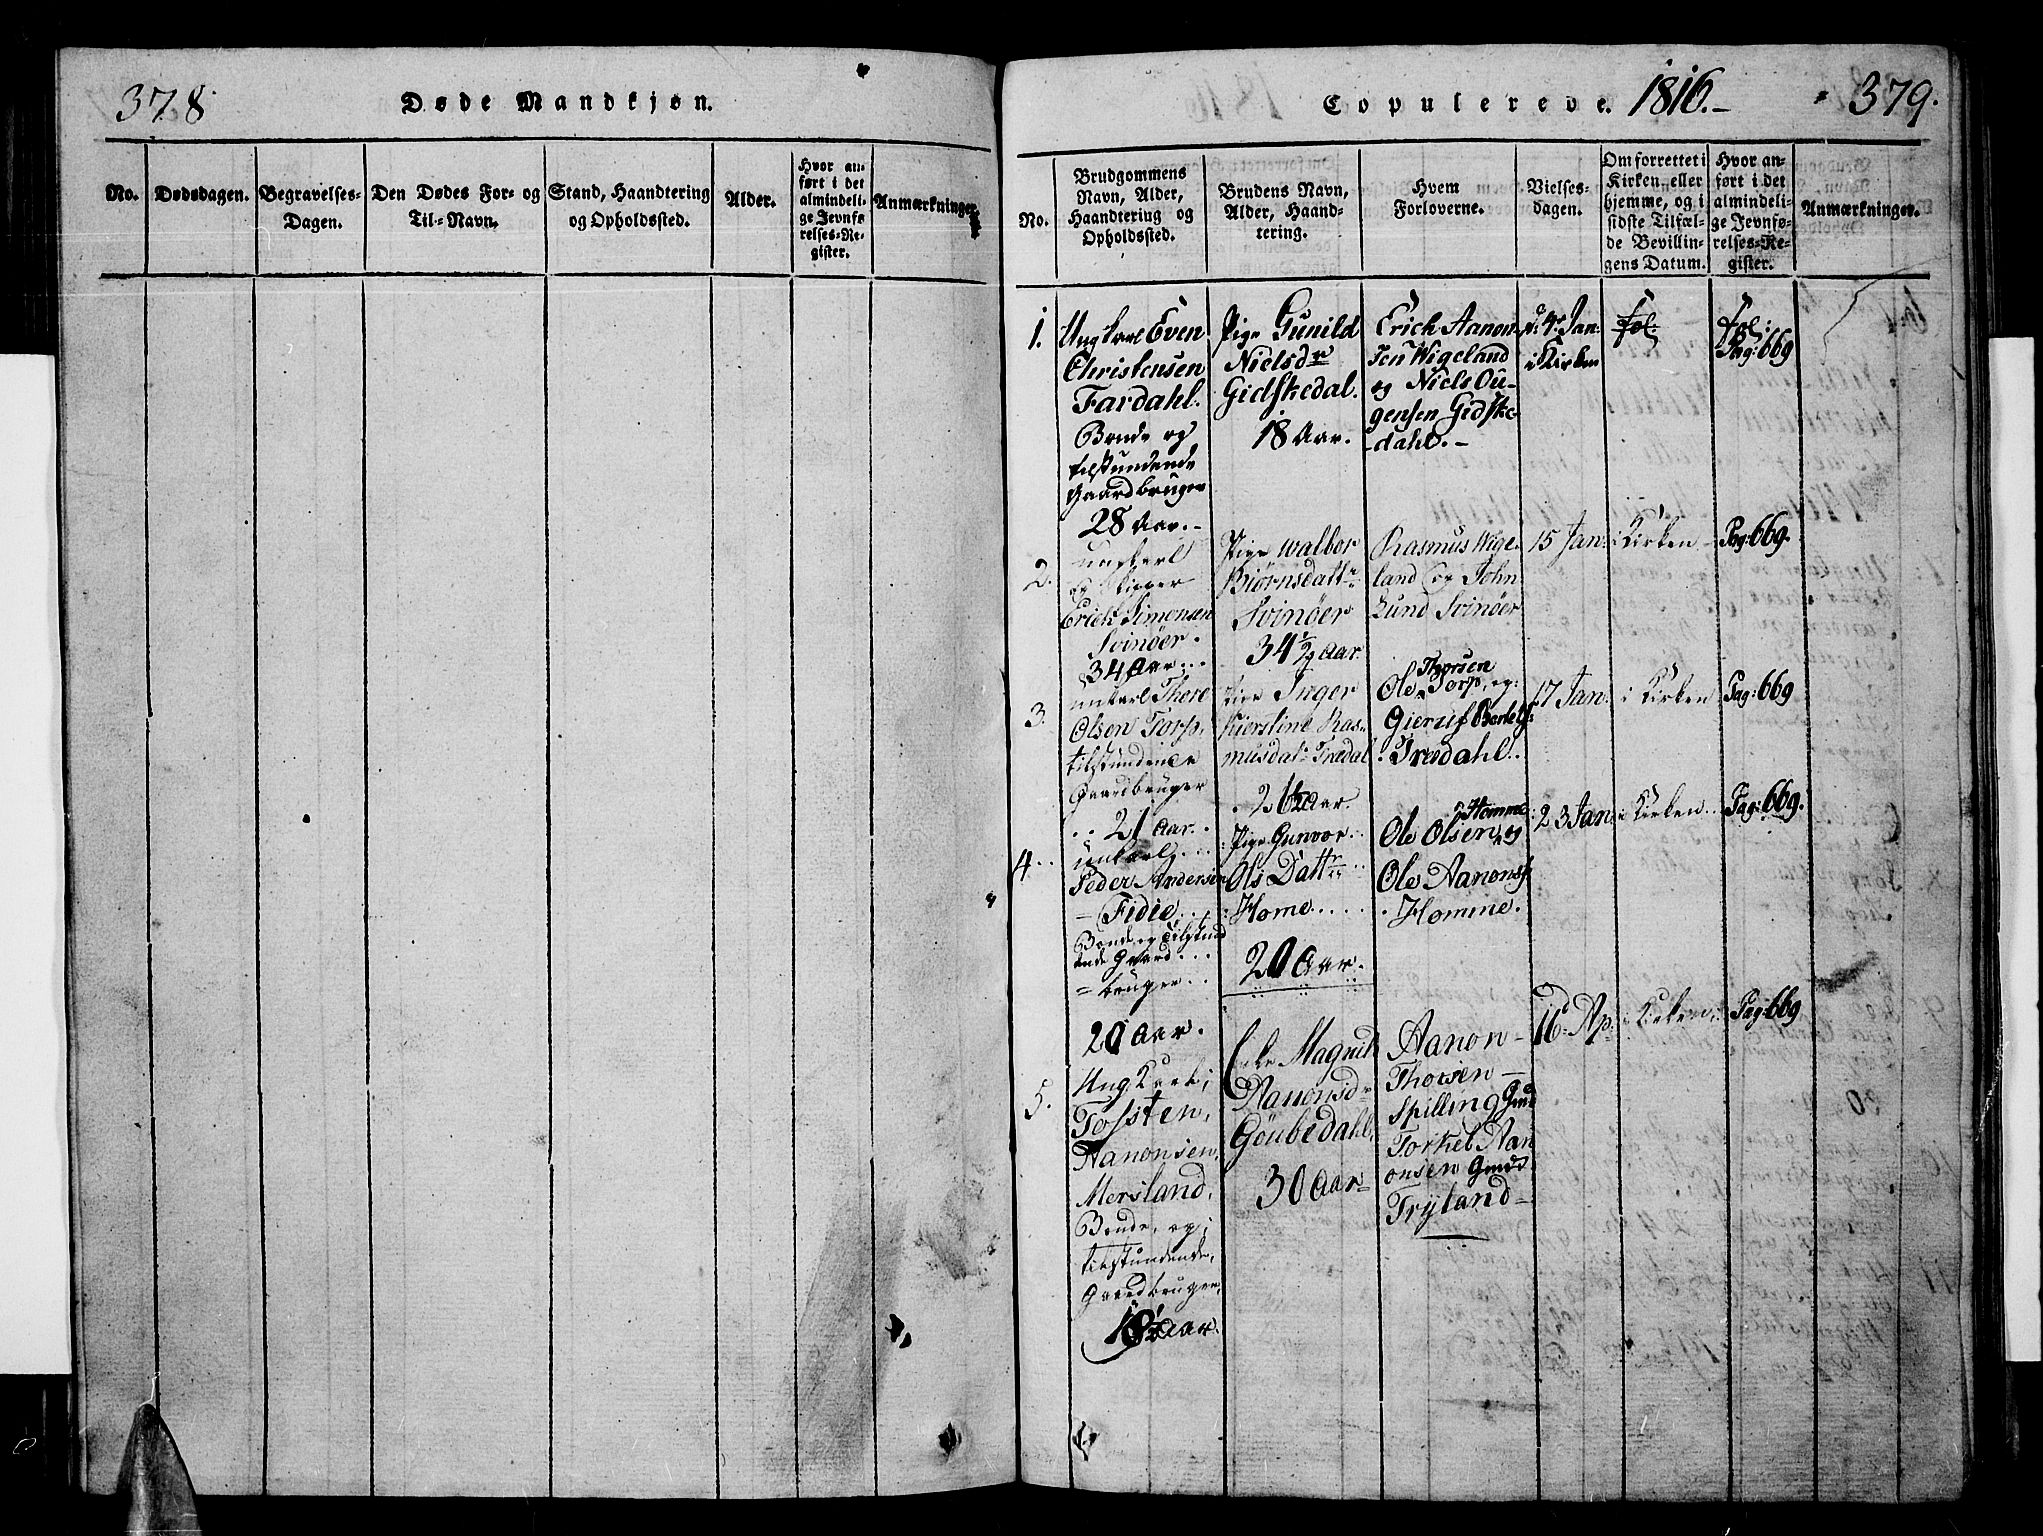 378
Døde Mandkjøn.
No.
Dødsdagen.
Begravelses-
Dagen.
Den Dødes For- og
Til-Navn.
Stand, Haandtering
og Opholdssted.
Alder.
Hvor an-
ført i det
almindeli-
ge Jevnfø-
relses-Re-
gister.
Anmærkninger.
Copulerede. 1816.-
379.
No.
Brudgommens
Navn, Alder,
Haandtering og
Opholdssted.
Brudens Navn,
Alder, Haand-
tering.
Hvem
Forloverne.
Vielses-
dagen.
Om forrettet i
Kirken, eller
hjemme, og i
sidste Tilfæl-
de Bevillin-
gens Datum.
Hvor an-
ført i det
almindeli-
ge Jevnfø-
relses-Re-
gister.
Anmærkninger.
1.
Ungkarl Even
Christensen
Fardahl.
Bonde og
tilstundende
Gaardbruger
28 Aar.-
Pige Gunild
Nielsdr
Gidskedal.
18 Aar.
Erich Aanon-
sen Wigeland
og Niels Ou-
gensen Gidske-
dahl.-
d: 4de Jan:
i Kirken
fol:
fol:
Pag: 669
2.
ungkarl
og Skipper
Erich Simonsen
Svinöer.
34 Aar...
Pige Walbor
Biörnsdattr
Svinöer
34 1/2 Aar.
Rasmus Wige-
land og John
Lund Svinöer
15 Jan:
i Kirken
Pag: 669.
3.
unkarl Thore
Olsen Torp.
tilstundende
Gaardbruger
.. 21 Aar..
Pige Inger
Kierstine Ras-
musdat: Trædal
. 26 1/2 Aar.
Thorsen
Ole Torp, og:
Gierulf Bertels:
. Trædahl..
17 Jan:
i Kirken
Pag: 669
4..
unkarl....
Peder Andersen
- Fidie....
Bonde og Tilstund
ende Gaard...
= bruger..
20 Aar.
Pige Gunvor..
Ols Dattr..
Home.....
20 Aar.
Homme
Ole Olsen, og
Ole Aanons
. Homme.
23 Jan:
i Kirken..
Pag: 669.
5.
Ung Karl;
Tosten,
Aanonsen,
Mersland,
Bonde, og;
tilstundende,
Gaardbruger,
18 1/2 Aar.
Magnil
Aanonsdr
Göubedahl,
30 Aar-
Aanon-
Thorsen-
Spilling
Torkel Aan
onsen
Tryland-
16d: Ap:
i Kirken:
Pag: 669